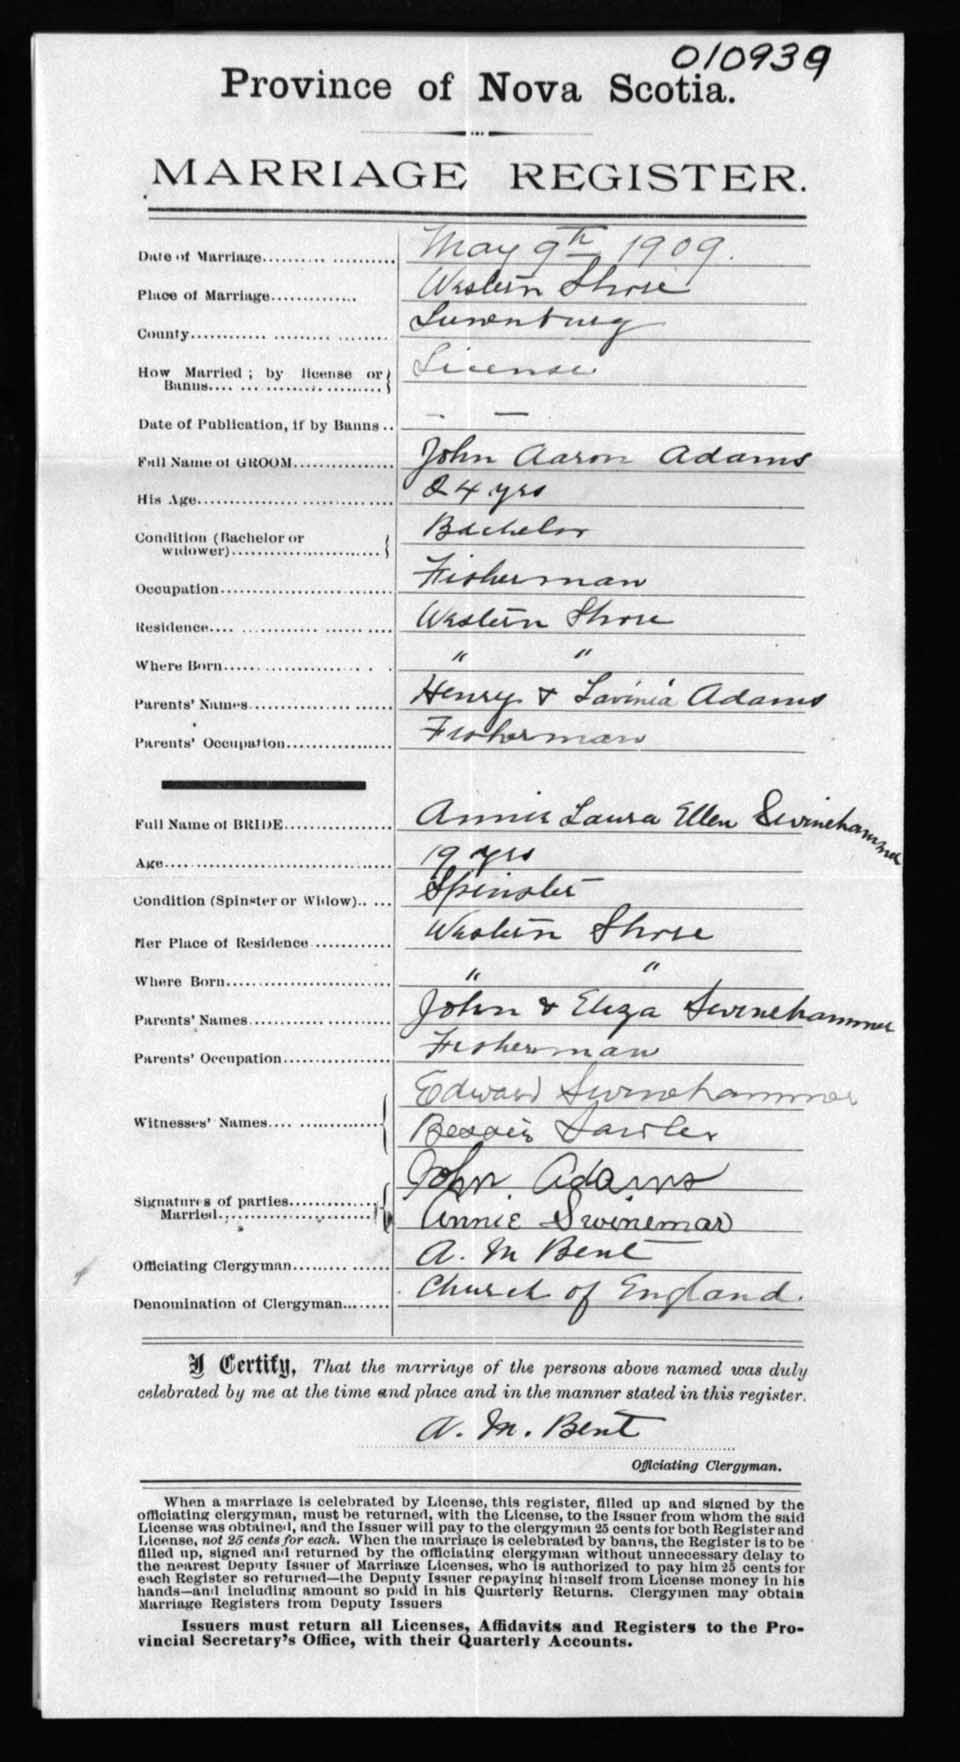 010939
Province of Nova Scotia.
MARRIAGE REGISTER.
Date of Marriage.......... ........... May 9th 1909.
Place of Marriage............. Western Shore
County............ ......... ........ Lunenburg
How Married ; by license or License
Banns.... ........... ..........
Date of Publication, if by Banns .. - —
Full Name of GROOM............... John Aaron Adams
His Age.............................. 24 yrs
Condition (Bachelor or Bachelor
widower)........................
Occupation.......................... Fisherman
Residence.... ............ ....... .... Western Shore
Where Born...................... . . . " "
Parents' Names............ .......... Henry & Lavinia Adams
Parents' Occupation................ Fisherman
Full Name of BRIDE................ Annie Laura Ellen Swinehammer
Age................................... 19 yrs
Condition (Spinster or Widow).. ... Spinster
Her Place of Residence ............ Western Shore
Where Born......................... " "
Parents' Names..................... John & Eliza Swinehammer
Parents' Occupation................ Fisherman
Edward Swinehammer
Witnesses' Names.... .............
Bessie Sawler
John Adams
Signatures of parties..............
Married.......................
Annie Swinemar
Officiating Clergyman......... ...... A. M Bent
Denomination of Clergyman........ Church of England.
I Certify, That the marriage of the persons above named was duly
celebrated by me at the time and place and in the manner stated in this register.
A. M. Bent
Officiating Clergyman.
When a marriage is celebrated by License, this register, filled up and signed by the
officiating clergyman, must be returned, with the License, to the Issuer from whom the said
License was obtained, and the Issuer will pay to the clergyman 25 cents for both Register and
License, not 25 cents for each. When the marriage is celebrated by banns, the Register is to be
filled up, signed and returned by the officiating clergyman without unnecessary delay to
the nearest Deputy Issuer of Marriage Licenses, who is authorized to pay him 25 cents for
each Register so returned—the Deputy Issuer repaying himself from License money in his
hands—and including amount so paid in his Quarterly Returns. Clergymen may obtain
Marriage Registers from Deputy Issuers
Issuers must return all Licenses, Affidavits and Registers to the Pro-
vincial Secretary's Office, with their Quarterly Accounts.